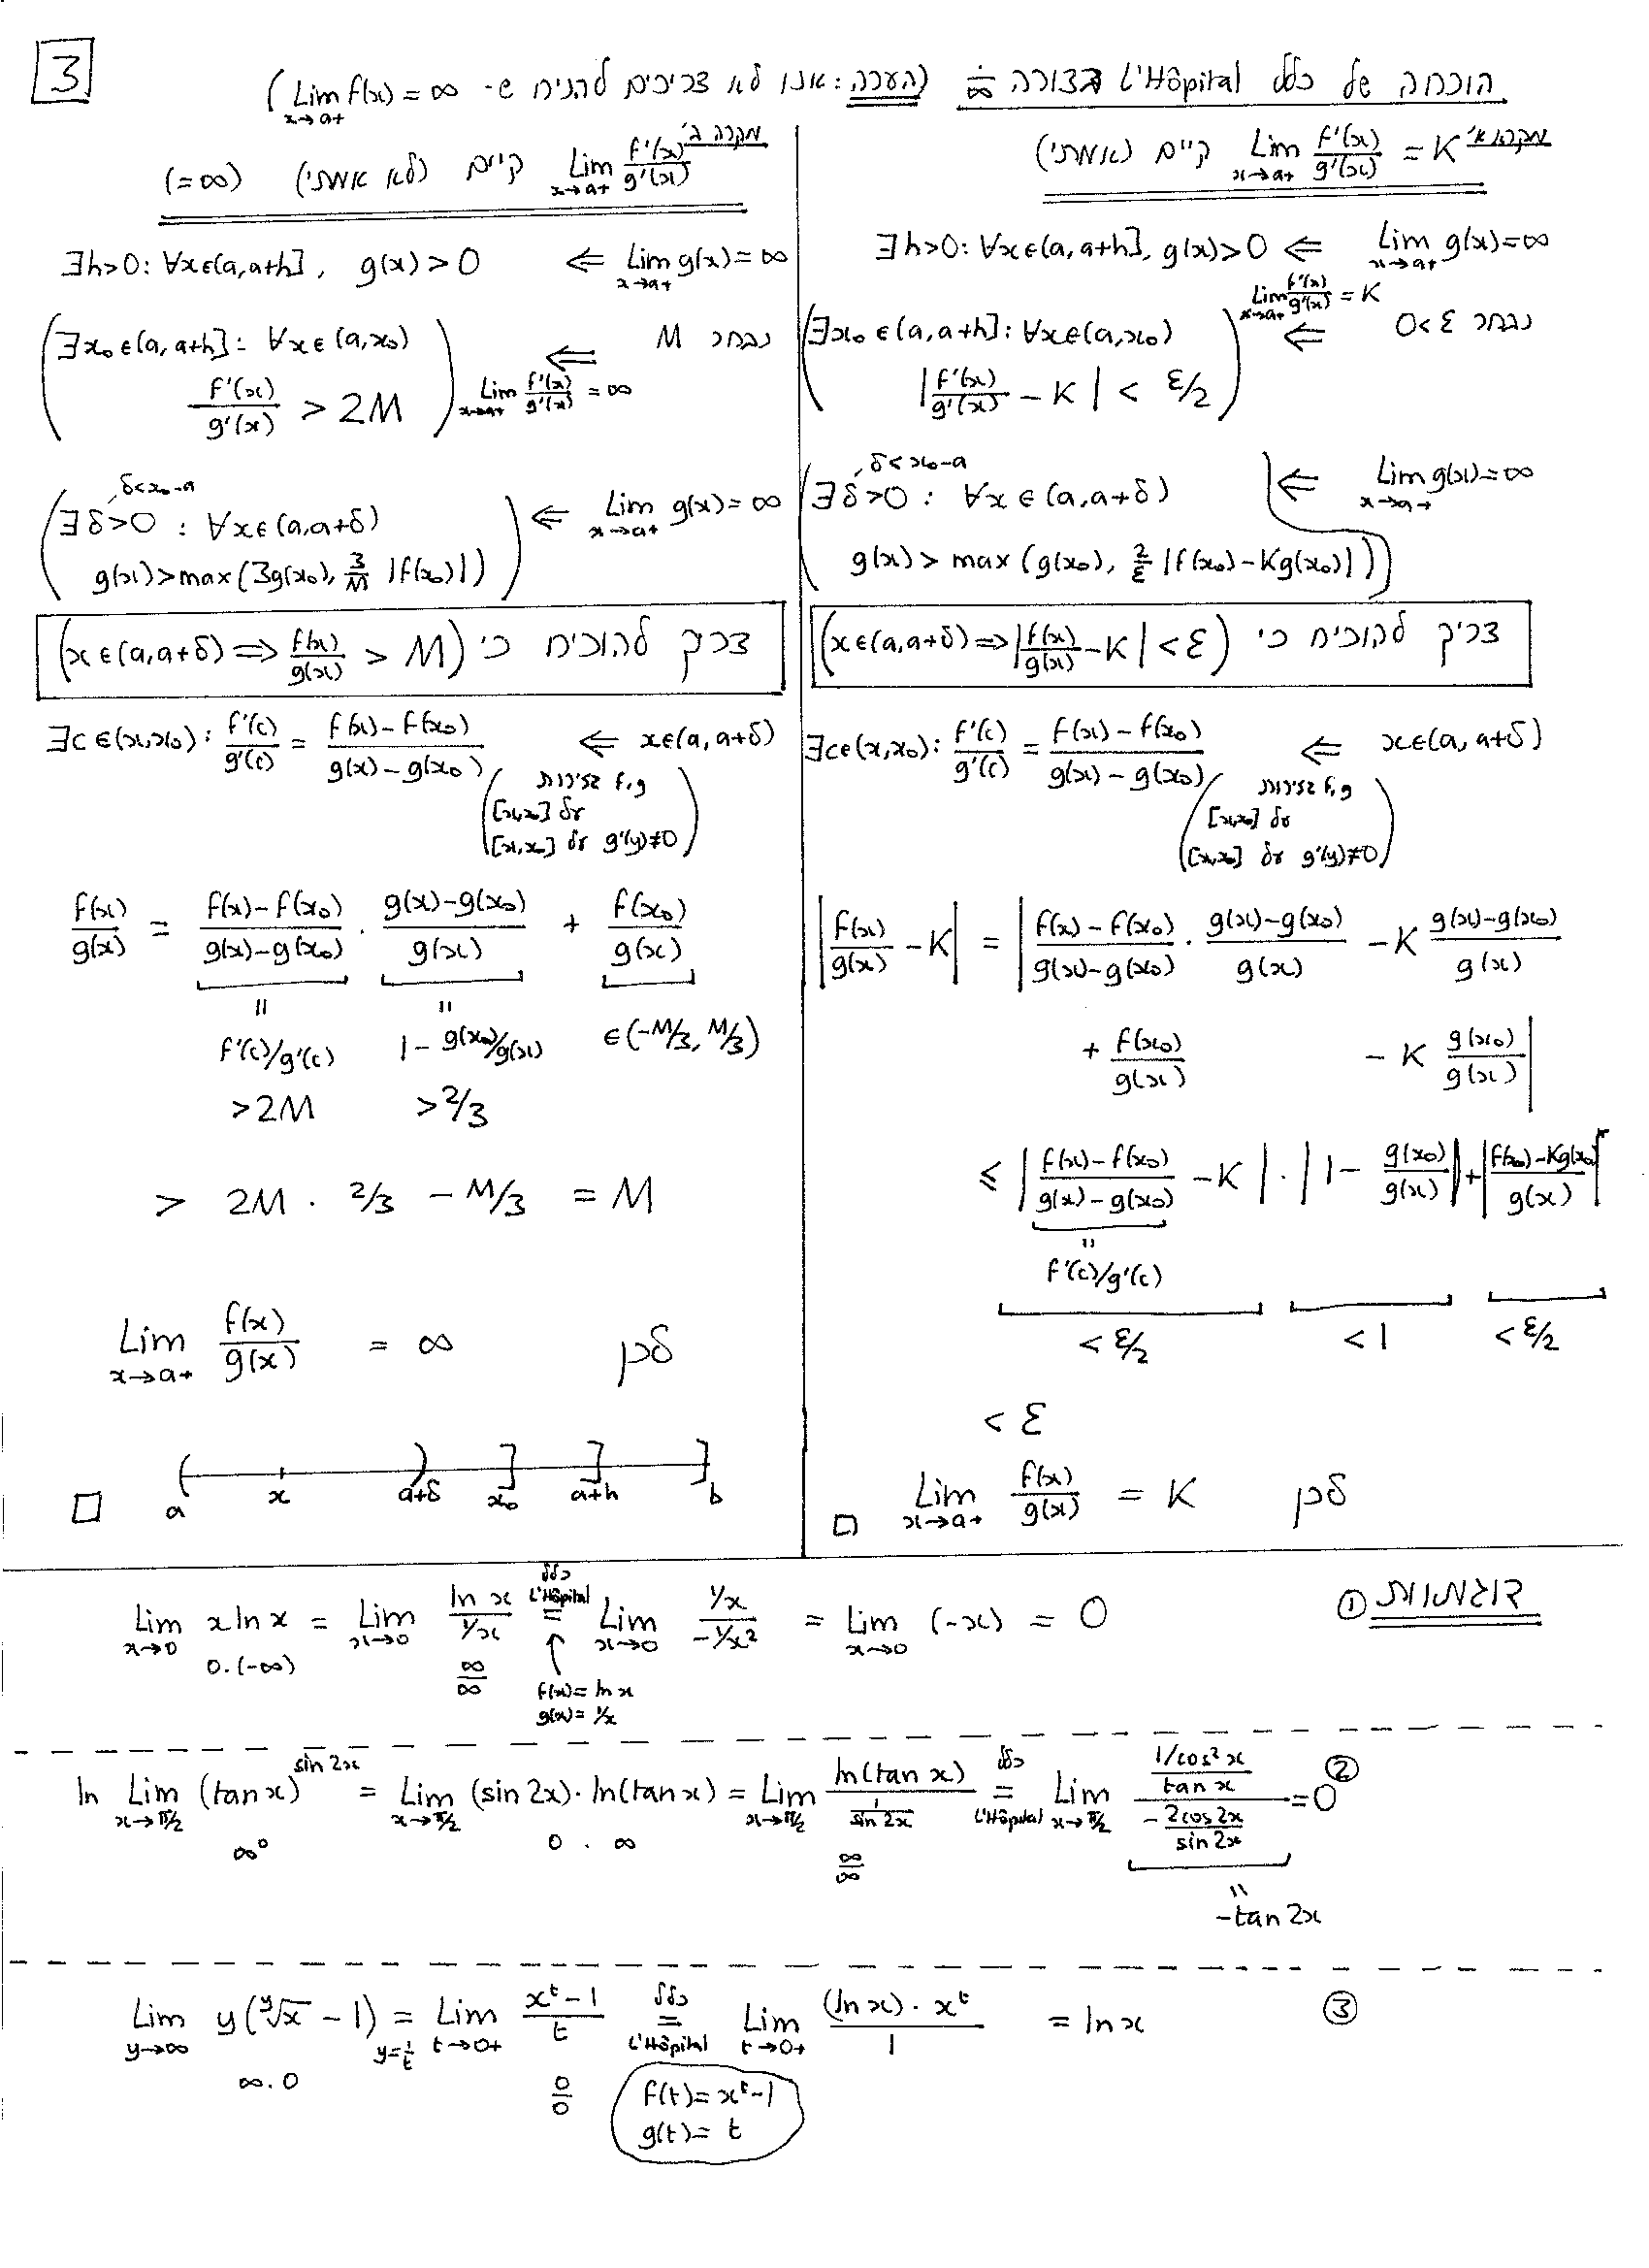 3
הוכחה של כלל L'Hôpital בצורה ÷/∞ (הערה: אנו לא צריכים להניח ש- Lim x→a+ f(x) = ∞)
מקרה א' Lim x→a+ f'(x)/g'(x) = K קיים (אמתי)
Lim x→a+ g(x) = ∞ ⇐ ∃h>0: ∀x∈(a,a+h], g(x)>0
נבחר 0<ε ⇐ (Lim x→a+ f'(x)/g'(x) = K) (∃x₀∈(a,a+h]: ∀x∈(a,x₀)
|f'(x)/g'(x) − K| < ε/2)
Lim x→a+ g(x) = ∞ ⇐ (∃δ>0, δ<x₀−a : ∀x∈(a,a+δ)
g(x) > max(g(x₀), 2/ε |f(x₀)−Kg(x₀)|))
צריך להוכיח כי (x∈(a,a+δ) ⇒ |f(x)/g(x) − K| < ε)
x∈(a,a+δ) ⇐ ∃c∈(x,x₀): f'(c)/g'(c) = (f(x)−f(x₀))/(g(x)−g(x₀))
(f,g גזירות
על [x,x₀]
g'(y)≠0 על [x,x₀])
|f(x)/g(x) − K| = |(f(x)−f(x₀))/(g(x)−g(x₀)) · (g(x)−g(x₀))/g(x) − K (g(x)−g(x₀))/g(x)
+ f(x₀)/g(x) − K g(x₀)/g(x)|
≤ |(f(x)−f(x₀))/(g(x)−g(x₀)) − K| · |1 − g(x₀)/g(x)| + |(f(x₀)−Kg(x₀))/g(x)|
=
f'(c)/g'(c)
< ε/2 < 1 < ε/2
< ε
לכן Lim x→a+ f(x)/g(x) = K
□
מקרה ב' Lim x→a+ f'(x)/g'(x) קיים (לא אמתי) (=∞)
Lim x→a+ g(x) = ∞ ⇐ ∃h>0: ∀x∈(a,a+h], g(x)>0
נבחר M ⇐ (Lim x→a+ f'(x)/g'(x) = ∞) (∃x₀∈(a,a+h]: ∀x∈(a,x₀)
f'(x)/g'(x) > 2M)
Lim x→a+ g(x) = ∞ ⇐ (∃δ>0, δ<x₀−a : ∀x∈(a,a+δ)
g(x) > max(3g(x₀), 3/M |f(x₀)|))
צריך להוכיח כי (x∈(a,a+δ) ⇒ f(x)/g(x) > M)
x∈(a,a+δ) ⇐ ∃c∈(x,x₀): f'(c)/g'(c) = (f(x)−f(x₀))/(g(x)−g(x₀))
(f,g גזירות
על [x,x₀]
g'(y)≠0 על [x,x₀])
f(x)/g(x) = (f(x)−f(x₀))/(g(x)−g(x₀)) · (g(x)−g(x₀))/g(x) + f(x₀)/g(x)
= =
f'(c)/g'(c) 1 − g(x₀)/g(x) ∈(−M/3, M/3)
>2M >2/3
> 2M · 2/3 − M/3 = M
לכן Lim x→a+ f(x)/g(x) = ∞
□ a x a+δ x₀ a+h b
דוגמאות ① Lim x→0 x ln x = Lim x→0 ln x/(1/x) = (כלל L'Hôpital) Lim x→0 (1/x)/(−1/x²) = Lim x→0 (−x) = 0
0·(−∞) ∞/∞ ↑
f(x) = ln x
g(x) = 1/x
② ln Lim x→π/2 (tan x)^(sin 2x) = Lim x→π/2 (sin 2x)·ln(tan x) = Lim x→π/2 ln(tan x)/(1/sin 2x) = (כלל L'Hôpital) Lim x→π/2 ((1/cos²x)/tan x)/(−2cos 2x/sin 2x) = 0
∞⁰ 0 · ∞ ∞/∞ =
−tan 2x
③ Lim y→∞ y(ʸ√x − 1) = (y=1/t) Lim t→0+ (xᵗ−1)/t = (כלל L'Hôpital) Lim t→0+ (ln x)·xᵗ/1 = ln x
∞·0 0/0 f(t) = xᵗ−1
g(t) = t